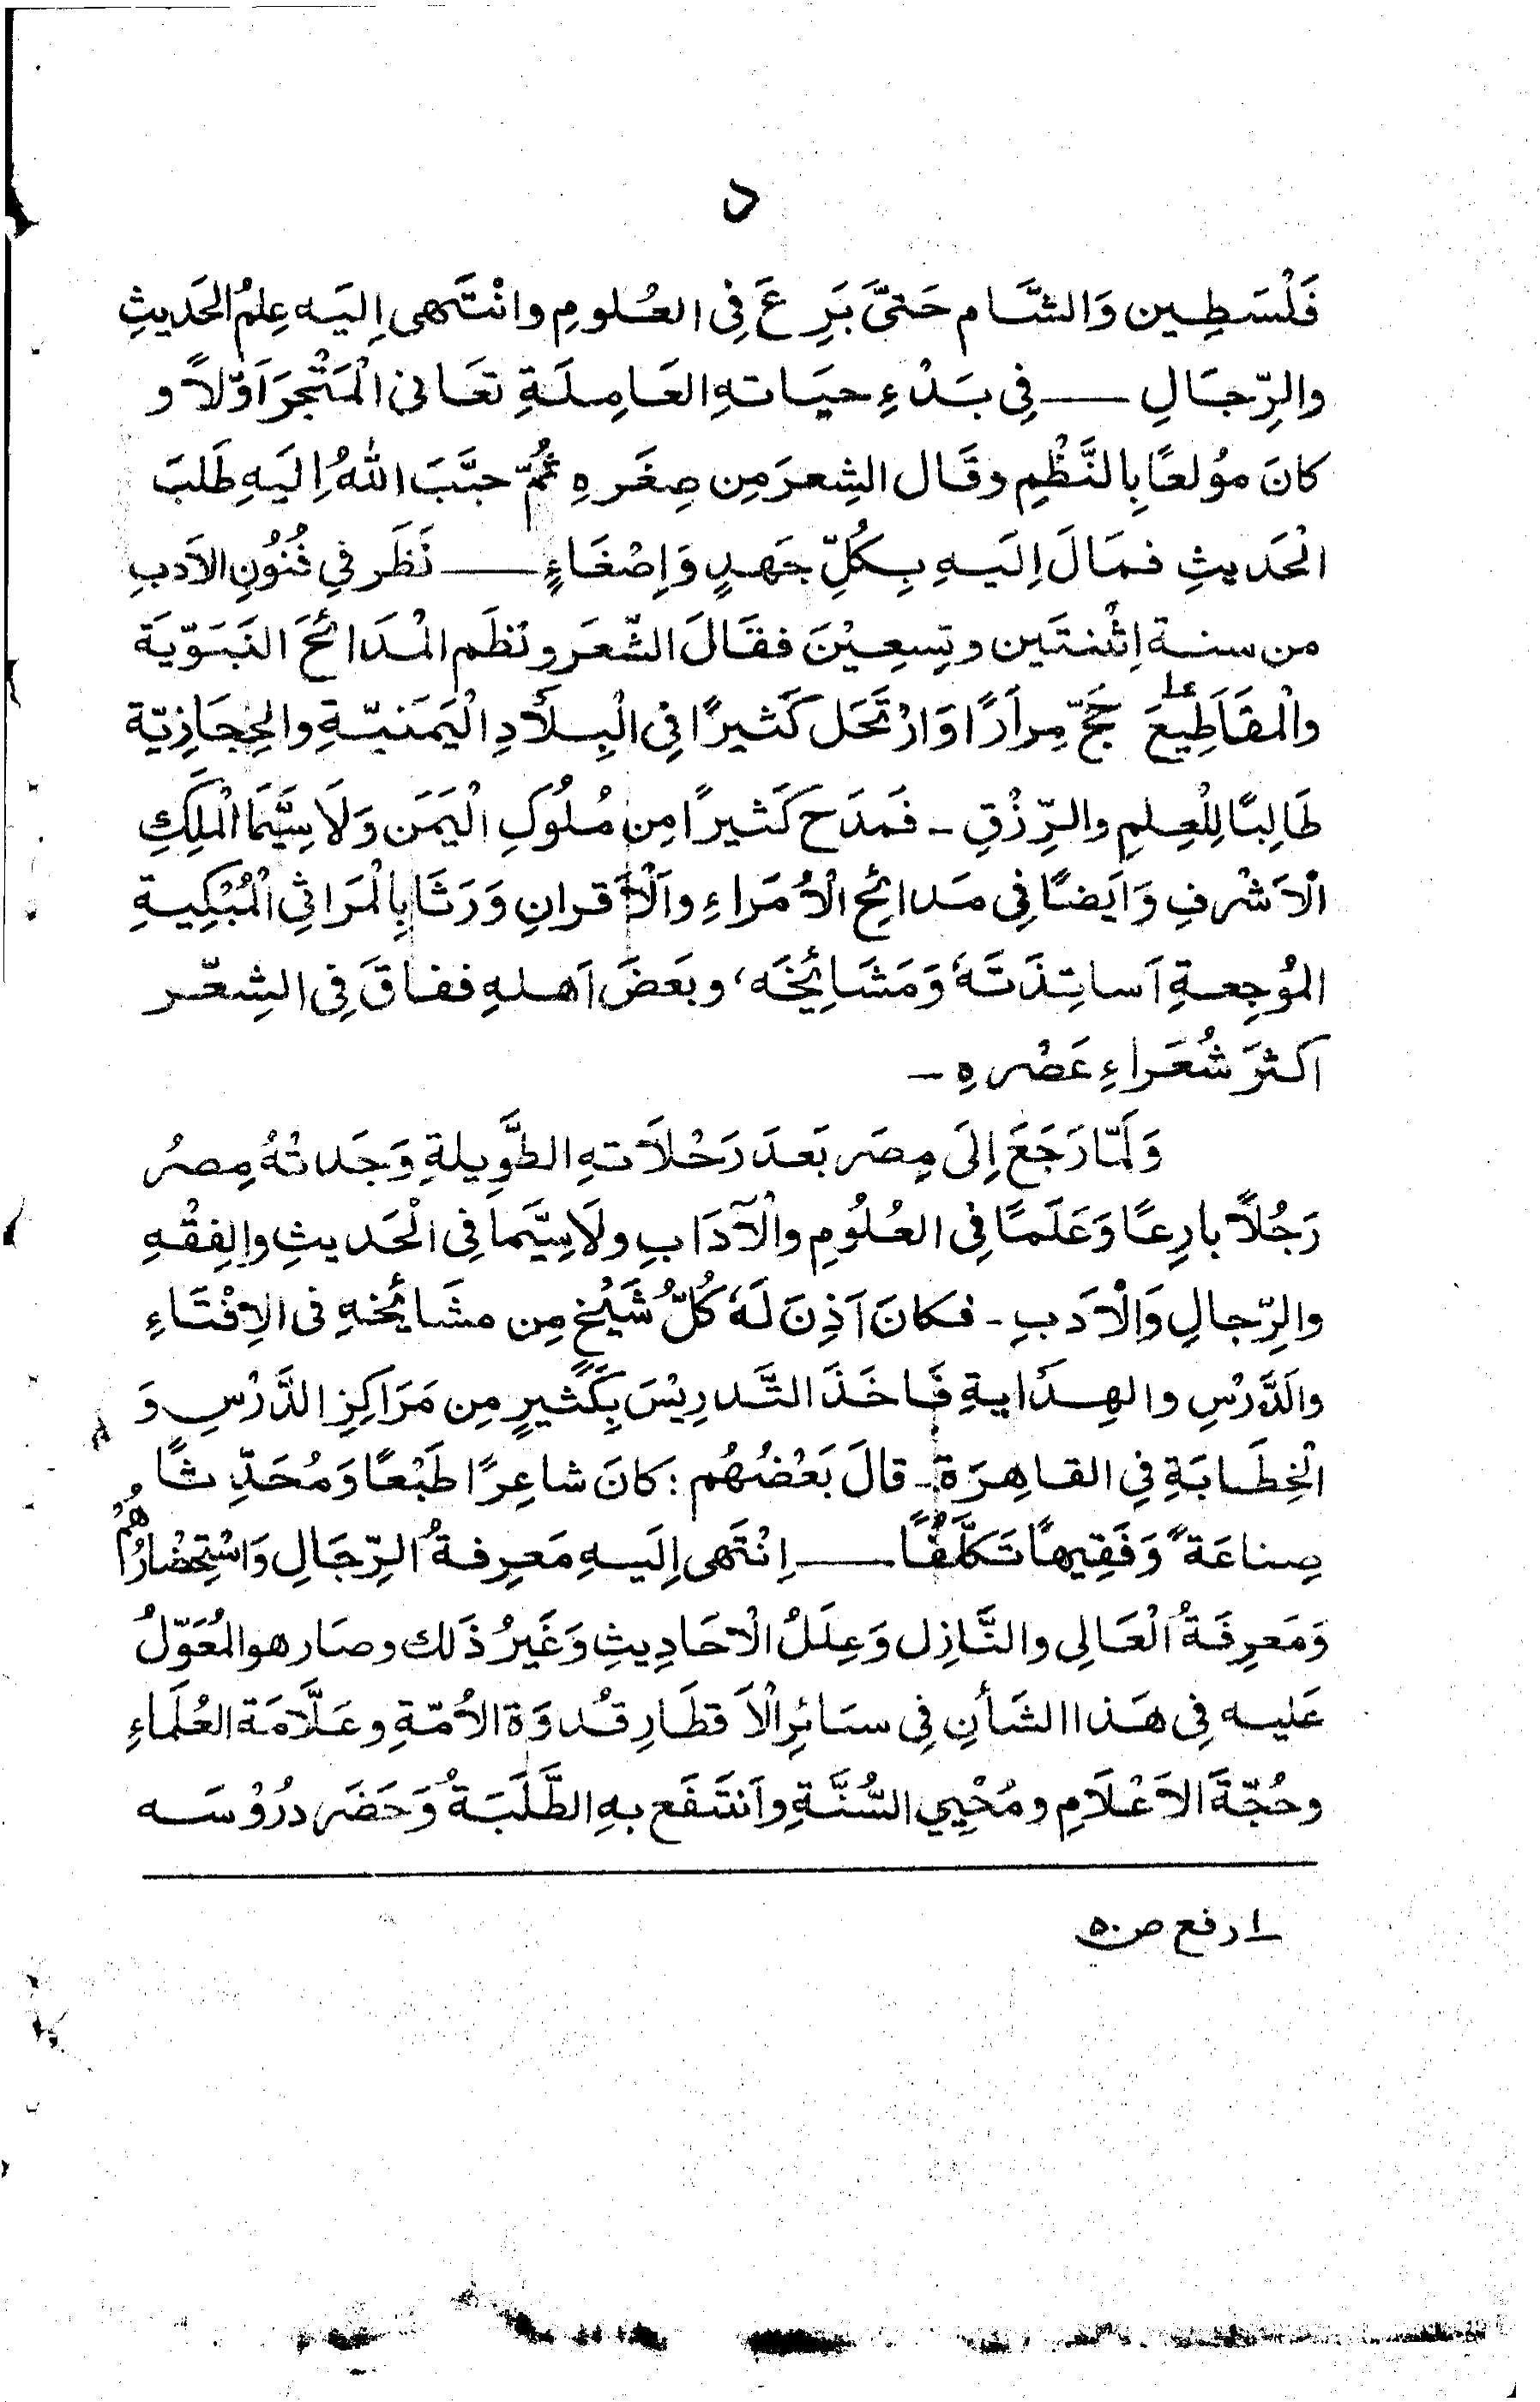 د
فَلْسَطِين وَالشَّام حَتىَّ بَرِعَ فِى العُلومِ وانْتَهى اِليَه عِلمُ الحَديثِ
والرِّجَالِ — فِى بَدْءِ حيَاتهِ العَامِلَةِ تعَانى الْمَتْجَرَ اَوّلاً و
كانَ مُولعًا بِالنَّظْمِ وقَال الشِعرَ مِن صِغَرهِ ثمُّ حبَّبَ اللهُ اِليَهِ طَلبَ
الْحَديثِ فمَالَ اِليَهِ بِكُلِّ جَهدٍ وَاِصْغَاءٍ — نَظَر فيِ فُنُوُنِ الاَدبِ
من سنة اِثْنتَين وتِسعِيْنَ فقَالَ الشّعَر ونظَم الْمدَائحَ النَبَوّيَة
والْمقَاطِيعَ ١ حَجّ مِرارًا وَارْتَحَل كَثيرًا فِى الْبِلَادِ الْيَمَنيّةِ والحِجَازِيّة
طَالِبًا لِلْعِلمِ والرِّزْقِ - فَمدَح كَثيرًا مِن مُلُوكِ الْيَمَن وَلَاسِيَّمَا الْمَلِكِ
الْاَشْرفِ وَايَضًا فِى مَدائِح الْاُمَراءِ والْاَقرانِ وَرَثَا بِالْمَرَاثِي الْمُبْكِيةِ
المُوجِعةِ اَساتِذَتَهٗ وَمَشَائِخَه، وبعَضَ اَهلهِ ففاقَ فِى الشِعّر
اكثرَ شُعَراءِ عَصْرهِ -
وَلَمّا رَجَعَ اِلَى مِصَر بَعدَ رَحْلَاتهِ الطَّوِيلةِ وَجَدتْهُ مِصرُ
رَجُلاً بارِعًا وَعَلَمًا فِى العُلُومِ والْآدَابِ ولَاسِيَّما فِى الْحَديثِ والفِقْهِ
والرِّجالِ وَالْاَدَبِ - فكانَ اَذِنَ لَهٗ كُلُّ شَيْخٍ مِن مشَائِخهِ فى الاِفْتَاءِ
والَدَّرْسِ والهِدَايةِ فَاخَذَ التَّدرِيْسَ بِكَثيرٍ مِن مَرَاكِزِ الدَّرْسِ وَ
الْخِطَابَةِ فِي القاهِرَة - قالَ بَعْضُهُم : كانَ شاعِرًا طَبْعًا وَمُحَدِّثًا
صِناعَةً وَفَقِيهًا تَكَلُّفًا — اِنْتَهى اِلَيهِ مَعرِفةُ الرِّجَالِ وَاسْتِحْضَارُهُمْ
وَمَعرِفَةُ الْعَالِى والنَّازِل وَعِلَلُ الْاحَادِيثِ وَغَيرُ ذَلك وصَار هو المُعَوّلُ
عَليه فِى هَذا الشَأنِ فِى سَائرِ الْاَقطَارِ قُدوَة الاُمّةِ وعَلَّامَة العُلَماءِ
وحُجّةَ الاَعْلَامِ ومُحْيِي السُّنَّةِ وانتَفَع بهِ الطَّلَبَةُ وَحَضَر درُوْسَه
١ رفع ص ٥٠